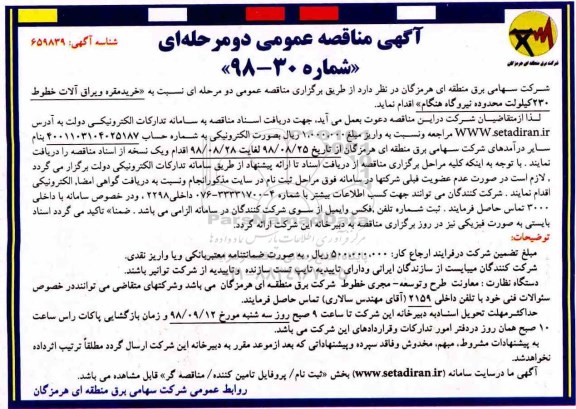 آگهی مناقصه عمومی دو مرحله‌ای
شناسه آگهی: ۶۵۹۸۳۹
«شماره ۳۰-۹۸»
شرکت برق منطقه ای هرمزگان
شرکت سهامی برق منطقه ای هرمزگان در نظر دارد از طریق برگزاری مناقصه عمومی دو مرحله ای نسبت به «خریدمقره ویراق آلات خطوط
۲۳۰کیلولت محدوده نیروگاه هنگام» اقدام نماید.
لـذا ازمتقاضیـان شـرکت دراین مناقصه دعوت بعمل می آید، جهت دریافت اسـناد مناقصه به سـامانه تدارکات الکترونیکـی دولت به آدرس
WWW.setadiran.ir مراجعه ونسبت به واریز مبلغ ریال بصورت الکترونیکی به شماره حساب ۴۰۰۱۱۰۳۱۰۴۰۲۵۱۸۷ بنام
سایر درآمدهای شرکت سهامی برق منطقه ای هرمزگان از تاریخ ۹۸/۰۸/۲۵ لغایت ۹۸/۰۸/۲۸ اقدام ویک نسخه از اسناد مناقصه را دریافت
نمایند . با توجه به اینکه کلیه مراحل برگزاری مناقصه از دریافت اسناد تا ارائه پیشنهاد از طریق سامانه تدارکات الکترونیکی دولت برگزار می گردد
، لازم است در صورت عدم عضویت قبلی شرکتها درسامانه فوق مراحل ثبت نام در سایت مذکورانجام ونسبت به دریافت گواهی امضاء الکترونیکی
اقدام نمایند . شرکت کنندگان می توانند جهت کسب اطلاعات بیشتر با شماره ۰۷۶-۳۳۳۳۱۷۰۰-۳ داخلی۲۲۹۸ ، ودر خصوص سامانه با داخلی
۳۰۰۰ تماس حاصل فرمایند . ثبت شماره تلفن ،فکس وایمیل از سوی شرکت کنندگان در سامانه الزامی می باشد . ضمنا" تاکید می گردد اسناد
بایستی به صورت فیزیکی نیز در روز برگزاری مناقصه به دبیرخانه این شرکت ارائه گردد.
توضیحات:
مبلغ تضمین شرکت درفرایند ارجاع کار: ۵۰۰,۰۰۰,۰۰۰ ریال ، به صورت ضمانتنامه معتبربانکی ویا واریز نقدی.
شرکت کنندگان میبایست از سازندگان ایرانی ودارای تاییدیه تایپ تست سازنده وتاییدیه از شرکت توانیر باشند.
دستگاه نظارت : معاونت طرح وتوسعه- مجری خطوط شرکت برق منطقـه ای هرمزگان می باشد وشرکتهای متقاضی می تواننددر خصوص
سئوالات فنی خود با تلفن داخلی ۲۱۵۹ (آقای مهندس سالاری) تماس حاصل فرمایند.
حداکثرمهلت تحویل اسنادبه دبیرخانه این شرکت تا ساعت ۹ صبح روز سه شنبه مورخ ۹۸/۰۹/۱۲ و زمان بازگشایی پاکات راس ساعت
۱۰ صبح همان روز دردفتر امور تدارکات وقراردادهای این شرکت می باشد.
به پیشنهادات مشروط، مبهم، مخدوش وفاقد سپرده وپیشنهاداتی که بعد ازموعد مقرر به دبیرخانه این شرکت ارسال گردد مطلقاً ترتیب اثرداده
نخواهدشد.
آگهی ما درسایت سامانه (www.setadiran.ir) بخش «ثبت نام/ پروفایل تامین کننده/ مناقصه گر» قابل مشاهده می باشد.
روابط عمومی شرکت سهامی برق منطقه ای هرمزگان